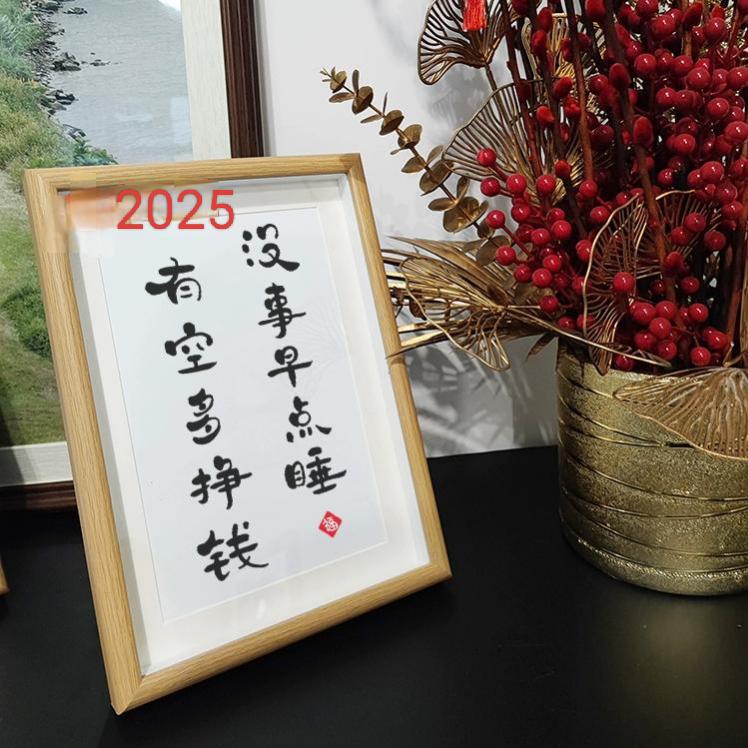 2025
没事早点睡
有空多挣钱